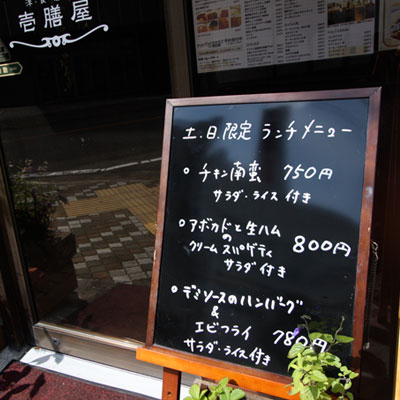 洋・
壱膳屋
土.日.限定 ランチメニュー
○ チキン南蛮 750円
サラダ・ライス 付き
○ アボカドと生ハム
の
クリームスパゲティ 800円
サラダ 付き
○ デミソースのハンバーグ
&
エビフライ 780円
サラダ・ライス 付き